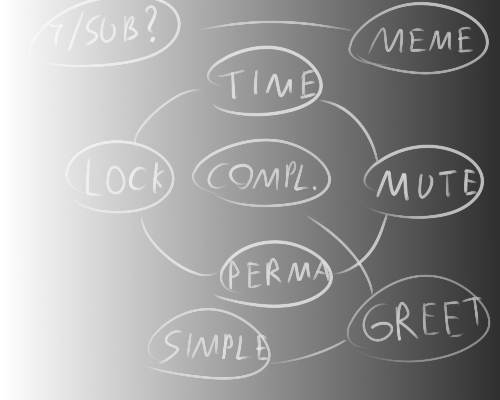 /SUB?
MEME
TIME
LOCK
COMPL.
MUTE
PERMA
GREET
SIMPLE